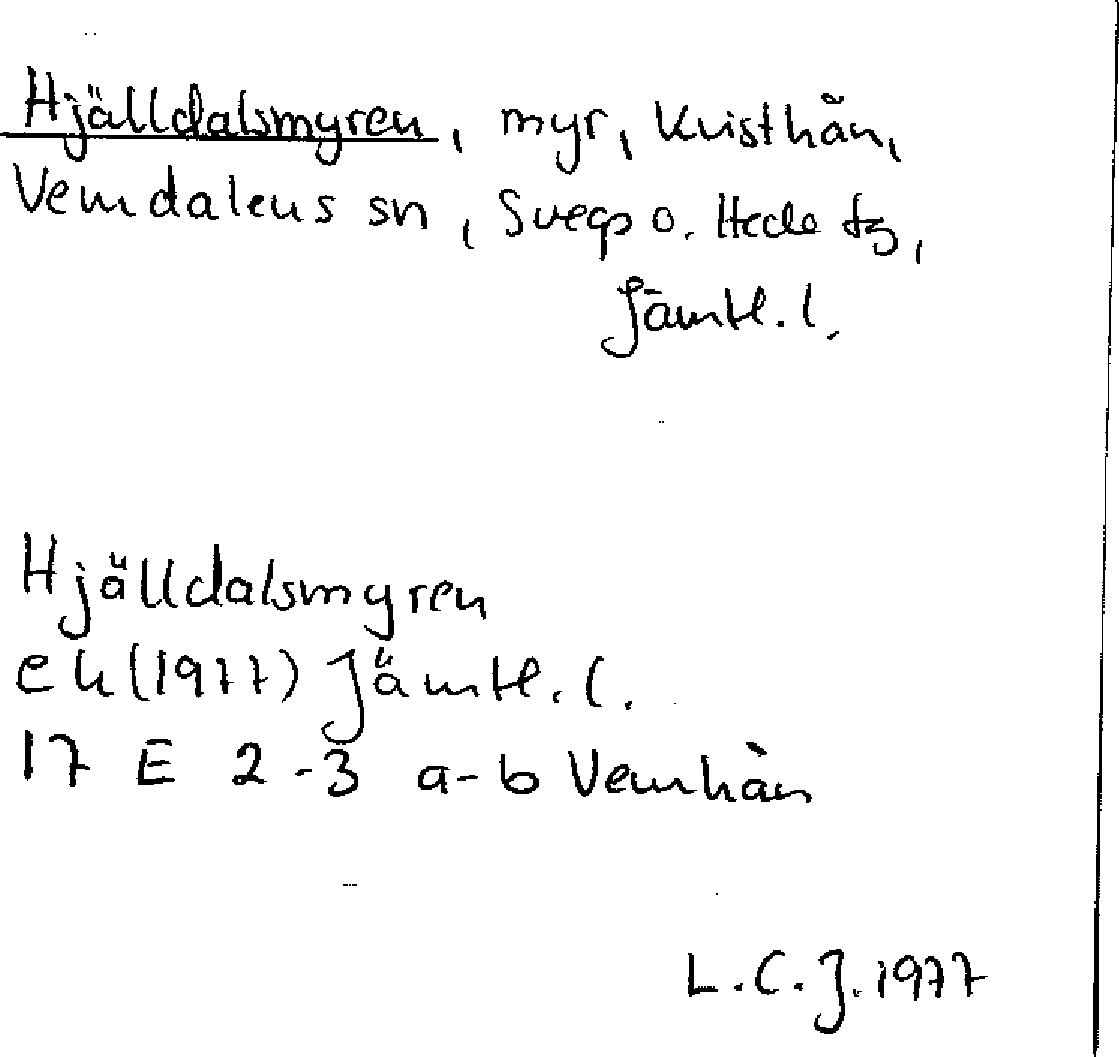 Hjälldalsmyren, myr, Kvisthån,
Vemdalens sn, Svegs o. Hede tg,
Jämtl. l.
Hjälldalsmyren
ek (1977) Jämtl. l.
17 E 2-3 a-b Vemhån
L.C.J. 1977